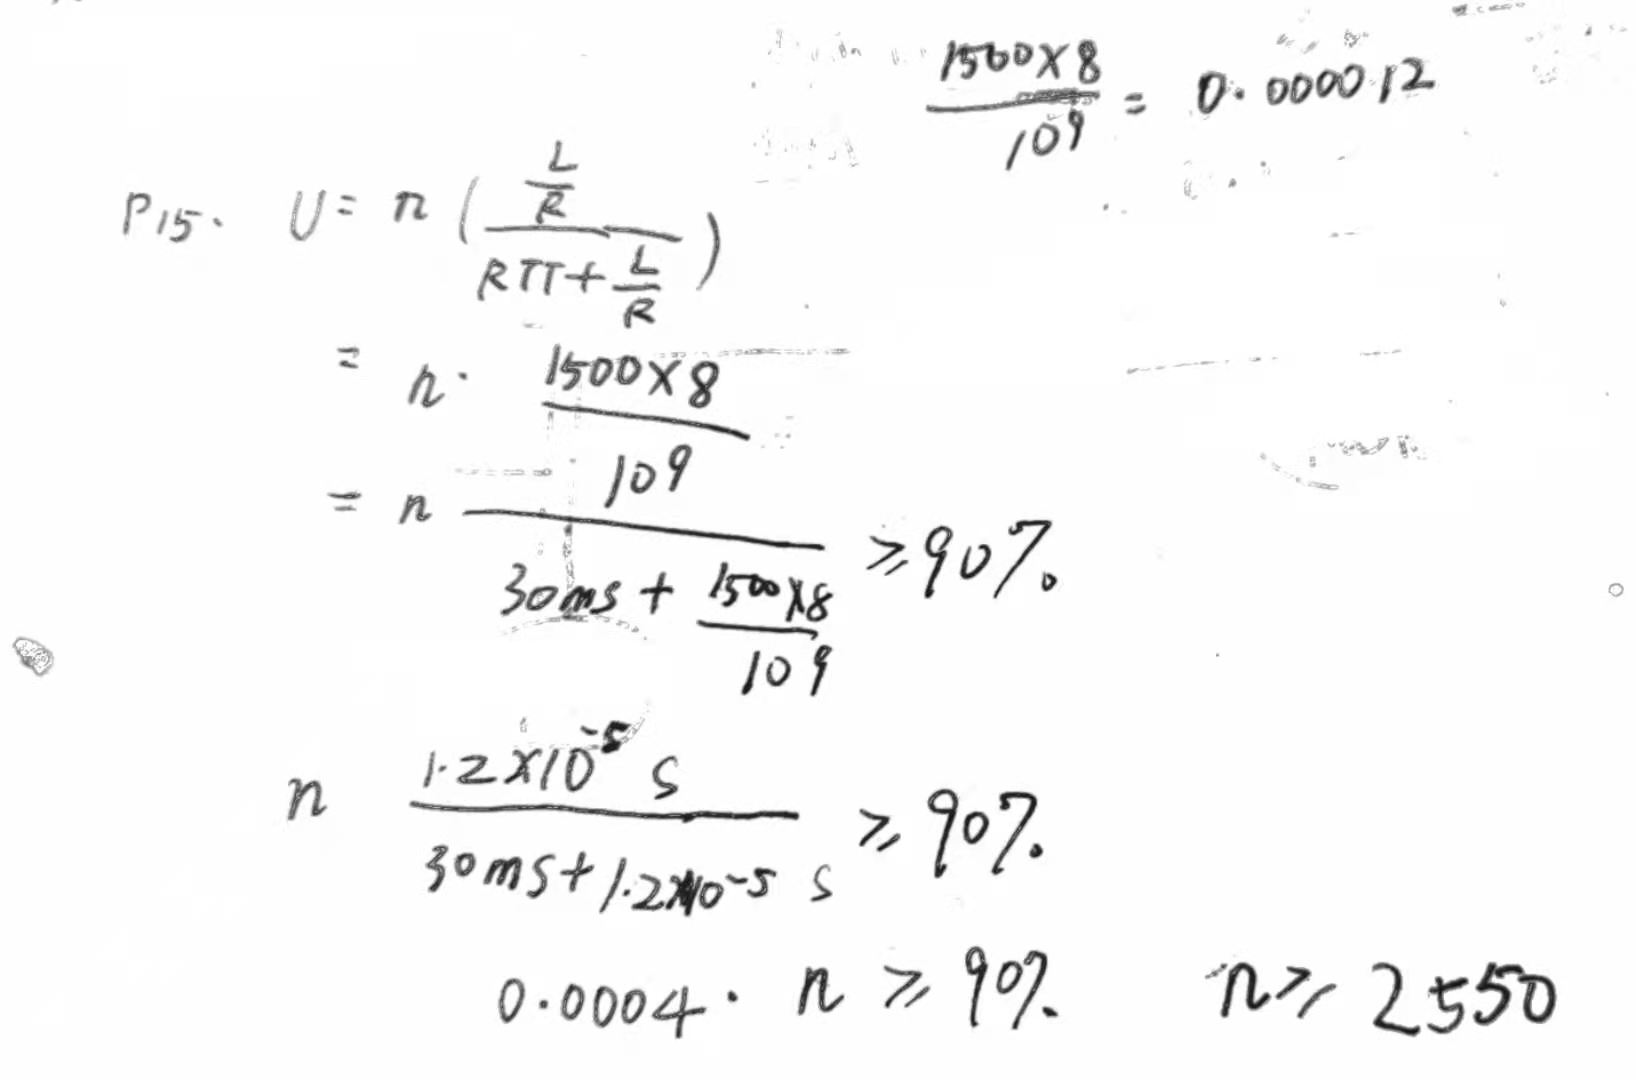 1500×8 / 10⁹ = 0.000012
P15. U = n ( (L/R) / (RTT + L/R) )
= n · 1500×8 / 10⁹
= n / (30ms + 1500×8 / 10⁹) ≥ 90%
n (1.2×10⁻⁵ s) / (30ms + 1.2×10⁻⁵ s) ≥ 90%
0.0004 · n ≥ 90% n ≥ 2550